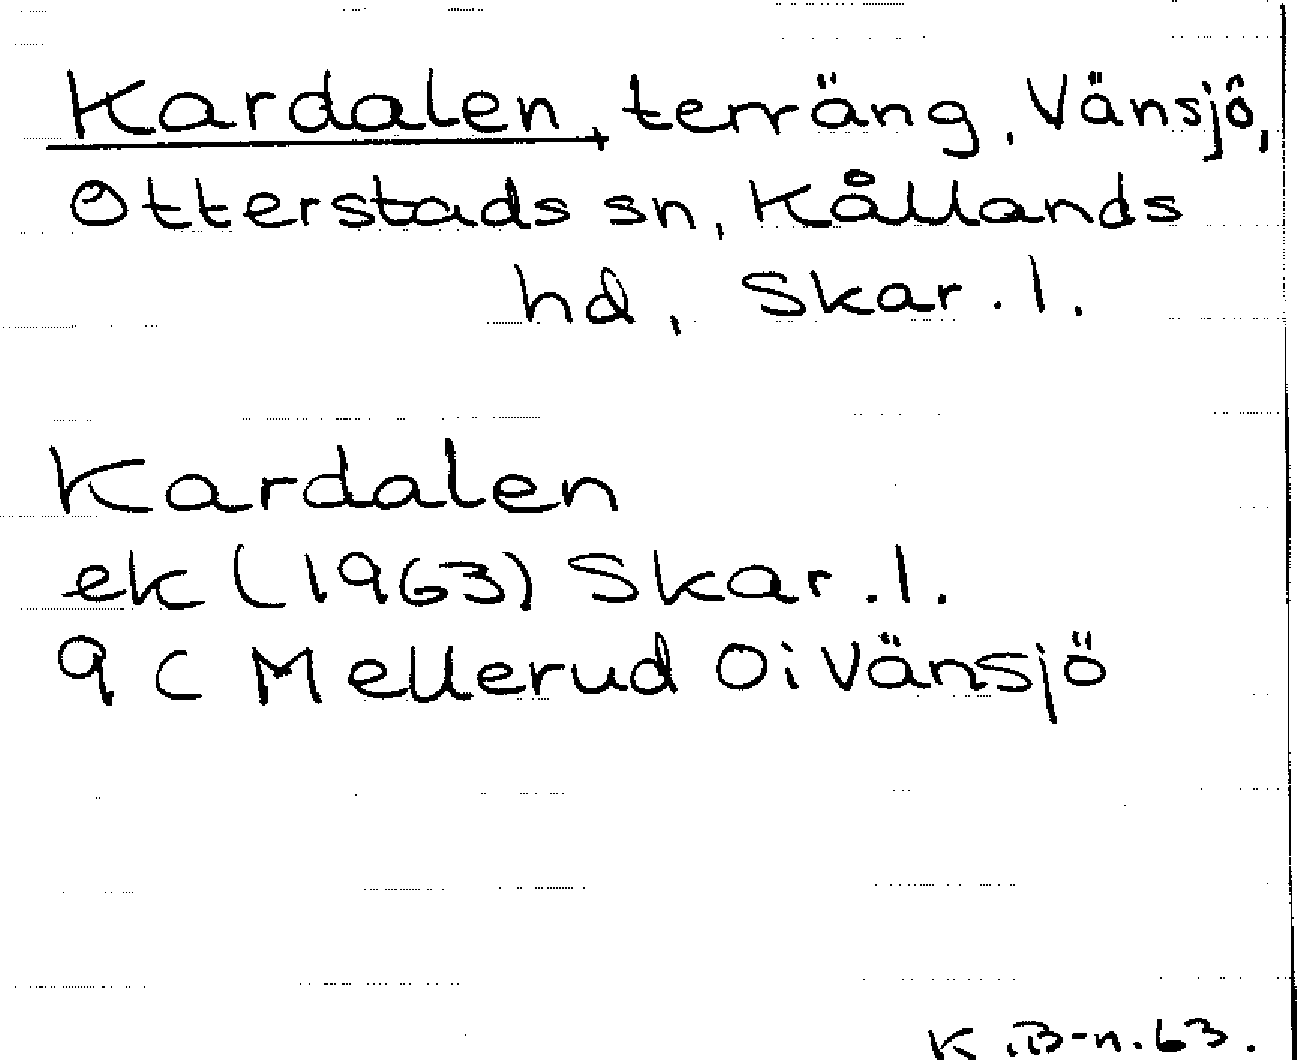 Kardalen, terräng, Vänsjö,
Otterstads sn, Kållands
hd, Skar. l.
Kardalen
ek (1963) Skar. l.
9 C Mellerud Oi Vänsjö
K.B-n. 63.